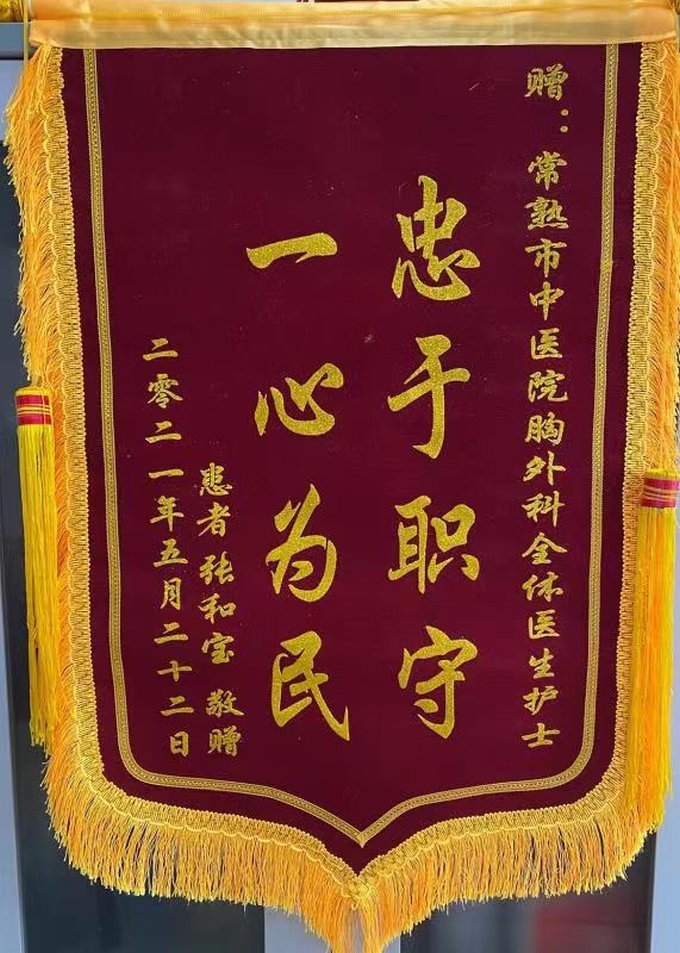 赠：常熟市中医院胸外科全体医生护士
忠于职守
一心为民
患者张和宝 敬赠
二零二一年五月二十二日